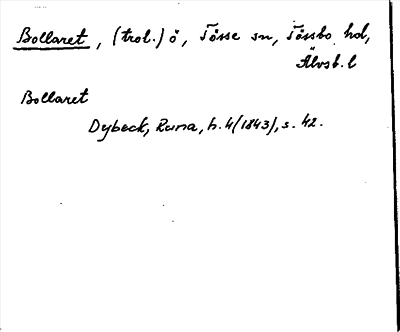 Bollaret, (trol.) ö, Tösse sn, Tössbo hd,
Älvsb. l
Bollaret
Dybeck, Runa, h. 4 (1843), s. 42.